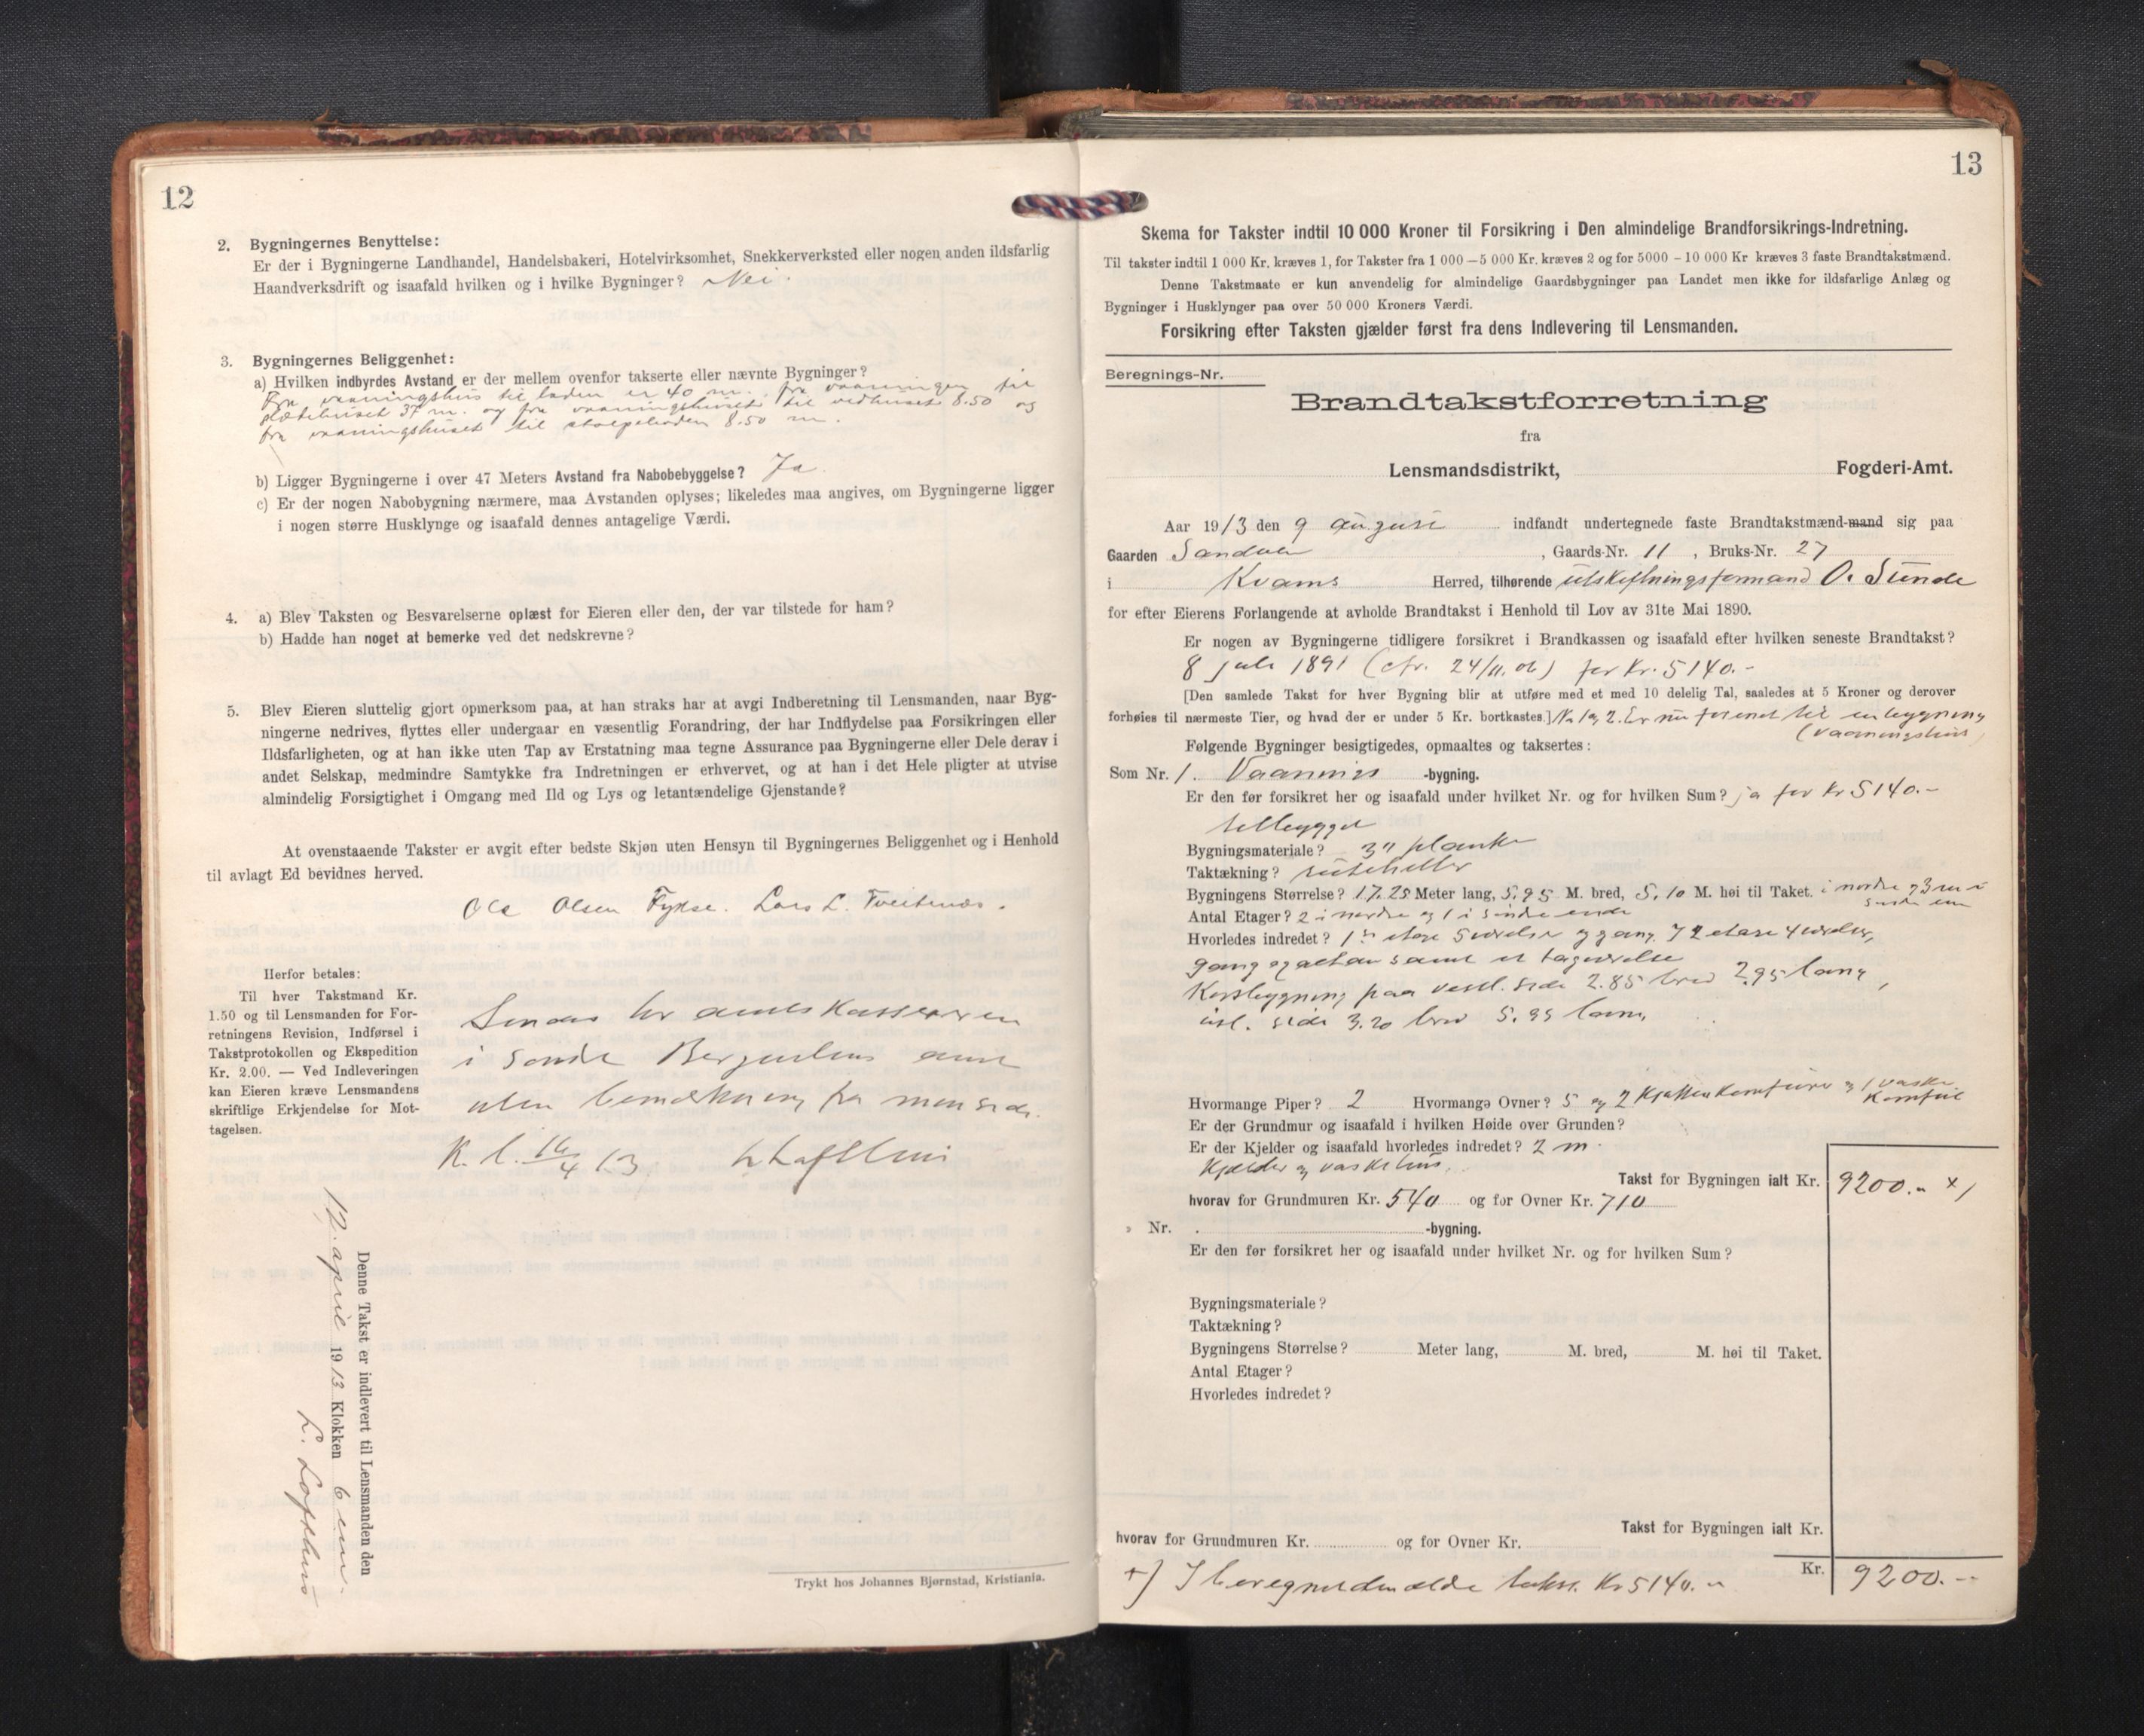 12
2. Bygningernes Benyttelse:
Er der i Bygningerne Landhandel, Handelsbakeri, Hotelvirksomhet, Snekkerverksted eller nogen anden ildsfarlig
Haandverksdrift og isaafald hvilken og i hvilke Bygninger? Nei.
3. Bygningernes Beliggenhet:
a) Hvilken indbyrdes Avstand er der mellem ovenfor takserte eller nævnte Bygninger?
Fra vaaningshus til laden er 40 m. fra vaaningen til
37 m. og fra vaaningshuset til vedhuset 8.50 og
fra vaaningshuset til stolpeboden 8.50 m.
b) Ligger Bygningerne i over 47 Meters Avstand fra Nabobebyggelse? Ja
c) Er der nogen Nabobygning nærmere, maa Avstanden oplyses; likeledes maa angives, om Bygningerne ligger
i nogen større Husklynge og isaafald dennes antagelige Værdi.
4. a) Blev Taksten og Besvarelserne oplæst for Eieren eller den, der var tilstede for ham?
b) Hadde han noget at bemerke ved det nedskrevne?
5. Blev Eieren sluttelig gjort opmerksom paa, at han straks har at avgi Indberetning til Lensmanden, naar Byg-
ningerne nedrives, flyttes eller undergaar en væsentlig Forandring, der har Indflydelse paa Forsikringen eller
Ildsfarligheten, og at han ikke uten Tap av Erstatning maa tegne Assurance paa Bygningerne eller Dele derav i
andet Selskap, medmindre Samtykke fra Indretningen er erhvervet, og at han i det Hele pligter at utvise
almindelig Forsigtighet i Omgang med Ild og Lys og letantændelige Gjenstande?
At ovenstaaende Takster er avgit efter bedste Skjøn uten Hensyn til Bygningernes Beliggenhet og i Henhold
til avlagt Ed bevidnes herved.
Ole Olsen Fykse. Lars L. Tveitnæs.
Herfor betales:
Til hver Takstmand Kr.
1.50 og til Lensmanden for For-
retningens Revision, Indførsel i
Takstprotokollen og Ekspedition
Kr. 2.00. — Ved Indleveringen
kan Eieren kræve Lensmandens
skriftlige Erkjendelse for Mot-
tagelsen.
Sendes hr amtskassereren
i Søndre Bergenhus amt
uten bemerkning fra min side.
K. l. 16/4 13 L Lofthus
Denne Takst er indlevert til Lensmanden den
12. april 1913 Klokken 6 em.
L. Lofthus
Trykt hos Johannes Bjørnstad, Kristiania.
13
Skema for Takster indtil 10 000 Kroner til Forsikring i Den almindelige Brandforsikrings-Indretning.
Til takster indtil 1 000 Kr. kræves 1, for Takster fra 1 000 – 5 000 Kr. kræves 2 og for 5000 – 10 000 Kr kræves 3 faste Brandtakstmænd.
Denne Takstmaate er kun anvendelig for almindelige Gaardsbygninger paa Landet men ikke for ildsfarlige Anlæg og
Bygninger i Husklynger paa over 50 000 Kroners Værdi.
Forsikring efter Taksten gjælder først fra dens Indlevering til Lensmanden.
Beregnings-Nr.
Brandtakstforretning
fra
Lensmandsdistrikt, Fogderi-Amt.
Aar 1913 den 9 august indfandt undertegnede faste Brandtakstmænd-mand sig paa
Gaarden Sandven, Gaards-Nr. 11, Bruks-Nr. 27
i Kvams Herred, tilhørende utskiftningsformand O. Sunde
for efter Eierens Forlangende at avholde Brandtakst i Henhold til Lov av 31te Mai 1890.
Er nogen av Bygningerne tidligere forsikret i Brandkassen og isaafald efter hvilken seneste Brandtakst?
8 juli 1891 (cfr. 24/11.06) for Kr. 5140.-
[Den samlede Takst for hver Bygning blir at utføre med et med 10 delelig Tal, saaledes at 5 Kroner og derover
forhøies til nærmeste Tier, og hvad der er under 5 Kr. bortkastes.] No 1 og 2. Er nu forenet til en bygning
(vaaningshus)
Følgende Bygninger besigtigedes, opmaaltes og taksertes:
Som Nr. 1. Vaanings -bygning.
Er den før forsikret her og isaafald under hvilket Nr. og for hvilken Sum? ja for Kr 5140.-
tilbygget
Bygningsmateriale? 3" planke
Taktækning? skifer­heller
Bygningens Størrelse? 17.25 Meter lang, 5.95 M. bred, 5.10 M. høi til Taket. i nordre og 3 m i
søndre ende
Antal Etager? 2 i nordre og 1 i søndre ende
Hvorledes indret? 1ste etage 5 værelser og gang. I 2 etage 4 værelser,
gang og altan samt et tagværelse
Korsbygning paa vestl. side 2.85 bred 2.95 lang,
østl. side 3.20 bred 5.95 lang.
Hvormange Piper? 2 Hvormange Ovner? 5 og 2 Kjøkkenkomfurer og 1 vaske
Komfur
Er der Grundmur og isaafald i hvilken Høide over Grunden?
Er der Kjelder og isaafald hvorledes indredet? 2 m.
Kjælder og vaskehus.
Takst for Bygningen ialt Kr. 9200.- x)
hvorav for Grundmuren Kr. 540 og for Ovner Kr. 710
» Nr. -bygning.
Er den før forsikret her og isaafald under hvilket Nr. og for hvilken Sum?
Bygningsmateriale?
Taktækning?
Bygningens Størrelse? Meter lang, M. bred, M. høi til Taket.
Antal Etager?
Hvorledes indredet?
Takst for Bygningen ialt Kr.
hvorav for Grundmuren Kr. og for Ovner Kr.
Kr. 9200.--
x) Iberegnet den ældre takst. Kr 5140.-